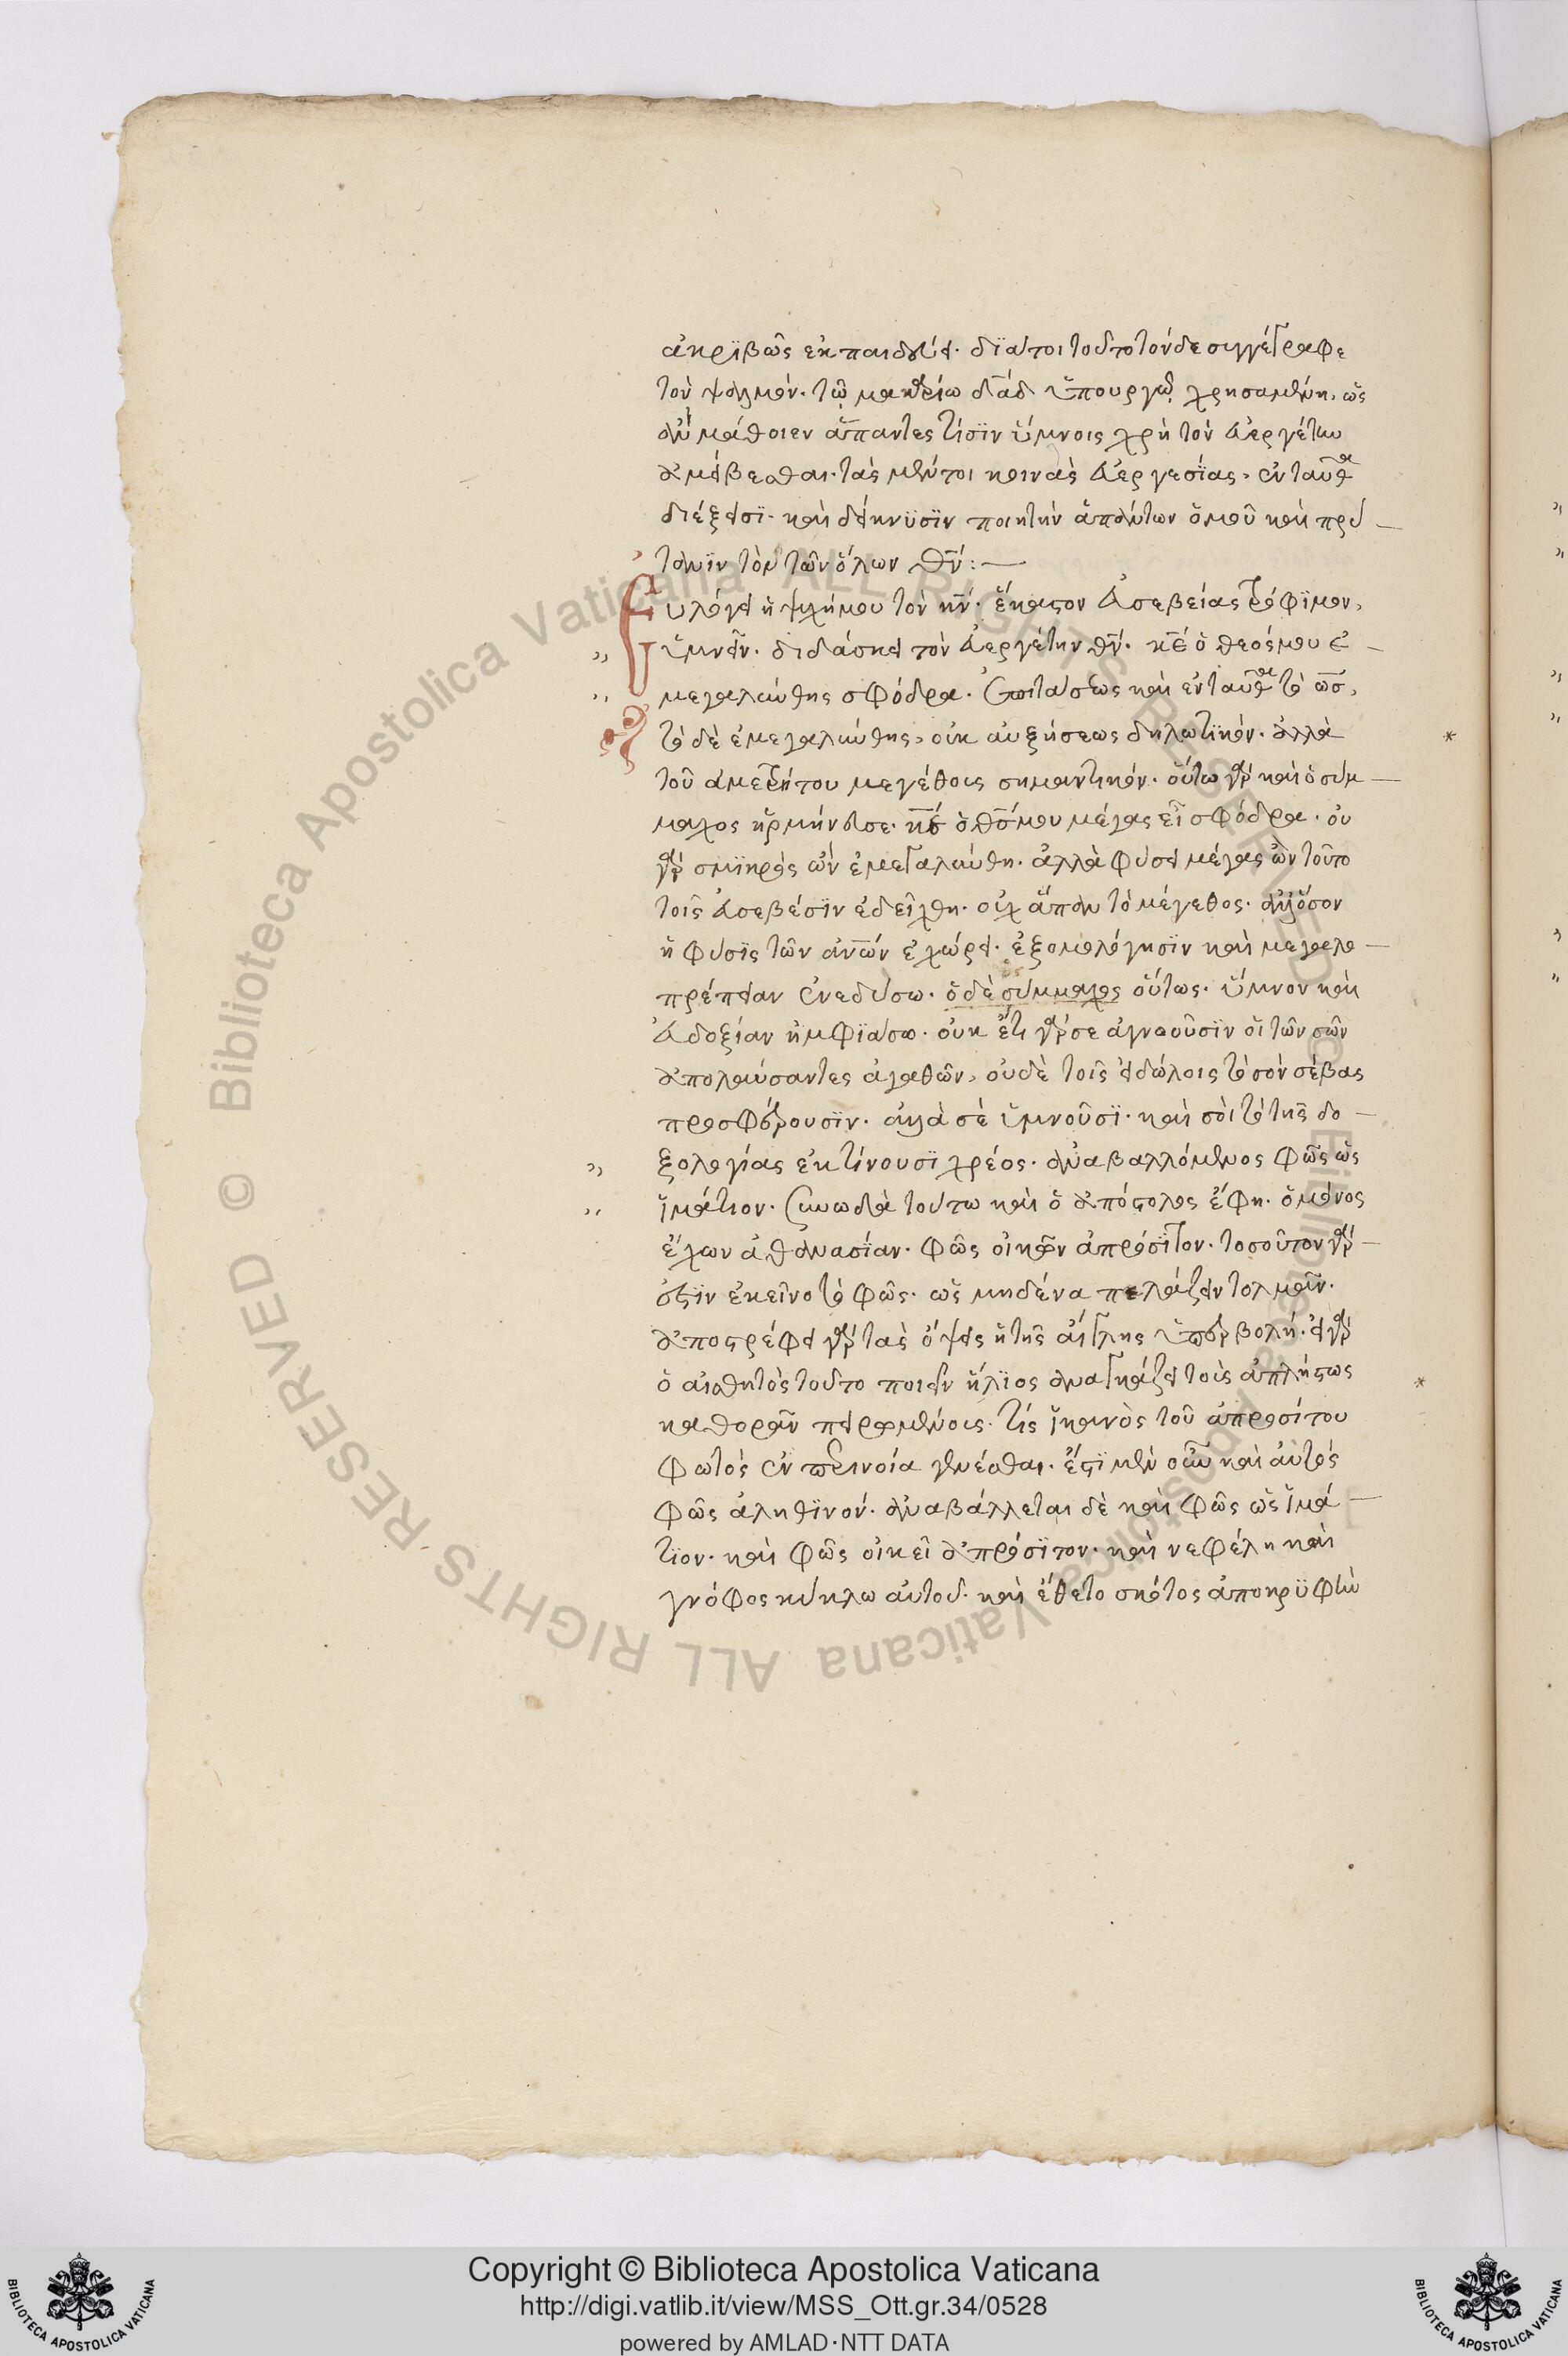 ἀκρϊβῶς ἐκπαιδεύει. δϊάτοι τοῦτο τόνδε συγγέγραφε
τὸν ψαλμόν. τῶ μακαρίω δᾱδ ὑπουργῶ χρησαμένη. ὡς
ἂν μάθοιεν ἅπαντες τίσϊν ὕμνοις χρὴ τὸν εὐεργέτην
ἀμείβεσθαι. τὰς μέντοι κοινὰς εὐεργεσίας, ἐνταῦθα
διέξεισϊ. καὶ δείκνϋσϊν ποιητὴν ἁπάντων ὁμοῦ καὶ πρύ
τανϊν τὸν τῶν ὅλων θ̅ν̅:
Εὐλόγει ἡ ψυχήμου τὸν κ̅ν̅. ἕκαστον εὐσεβείας τρόφϊμον,
ὑμνεῖν. διδάσκει τὸν εὐεργέτην θ̅ν̅. κ̅ε̅ ὁ θεόσμου ἐ
μεγαλύνθης σφόδρα. ἐπιτάσεως καὶ ἐνταῦθα τὸ ω̅σ̅,
τὸ δὲ ἐμεγαλύνθης, οὐκ αὐξήσεως δηλωτϊκόν. ἀλλὰ
τοῦ ἀμετρήτου μεγέθους σημαντικόν. οὕτω γὰρ καὶ ὁ σύμ
μαχος ἡρμήνευσε. κ̅ε̅ ὁ θ̅σ̅μου μέγας εἶ σφόδρα. οὐ
γὰρ σμϊκρὸς ὢν ἐμεγαλύνθη. ἀλλὰ φύσει μέγας ὢν τοῦτο
τοῖς εὐσεβέσϊν ἐδείχθη. οὐχ ἅπαν τὸ μέγεθος. ἀλλ᾽ ὅσον
ἡ φύσϊς τῶν ἀν̅ων ἐχώρει. ἐξομολόγησϊν καὶ μεγαλο
πρέπειαν ἐνεδύσω. ὁ δὲ σύμμαχος οὕτως. ὕμνον καὶ
εὐδοξίαν ἠμφϊάσω. οὐκ ἔτι γάρ σε ἀγνοοῦσϊν οἱ τῶν σῶν
ἀπολαύσαντες ἀγαθῶν, οὐδὲ τοῖς εἰδώλοις τὸ σὸν σέβας
προσφέρουσϊν. ἀλλὰ σὲ ὑμνοῦσϊ. καὶ σοὶ τὸ τῆς δο
ξολογίας ἐκτίνουσϊ χρέος. ἀναβαλλόμενος φῶς ὡς
ἱμάτιον. συνωδὰ τούτω καὶ ὁ ἀπόστολος ἔφη. ὁ μόνος
ἔχων ἀθανασϊαν. φῶς οἰκῶν ἀπρόσϊτον. τοσοῦτον γάρ
ἐστϊν ἐκεῖνο τὸ φῶς. ὡς μηδένα πελάζειν τολμᾶν.
ἀποστρέφει γὰρ τὰς ὄψεις ἡ τῆς αἴγλης ὑπερβολή. εἰ γὰρ
ὁ αἰσθητὸς τοῦτο ποιεῖν ἥλϊος ἀναγκάζει τοῖς ἀπλήστως
καθορᾶν πειρωμένοις. τίς ἱκανὸς τοῦ ἀπροσίτου
φωτὸς ἐν περινοία γενέσθαι. ἔστϊ μὲν οὖν καὶ αὐτὸς
φῶς ἀληθϊνόν. ἀναβάλλεται δὲ καὶ φῶς ὡς ἱμά
τϊον. καὶ φῶς οἰκεῖ ἀπρόσϊτον. καὶ νεφέλη καὶ
γνόφος κύκλω αὐτοῦ. καὶ ἔθετο σκότος ἀποκρϋφὴν
Copyright © Biblioteca Apostolica Vaticana
http://digi.vatlib.it/view/MSS_Ott.gr.34/0528
powered by AMLAD·NTT DATA
BIBLIOTECA APOSTOLICA VATICANA
BIBLIOTECA APOSTOLICA VATICANA
© Biblioteca Apostolica Vaticana ALL RIGHTS RESERVED © Biblioteca Apostolica Vaticana ALL RIGHTS RESERVED